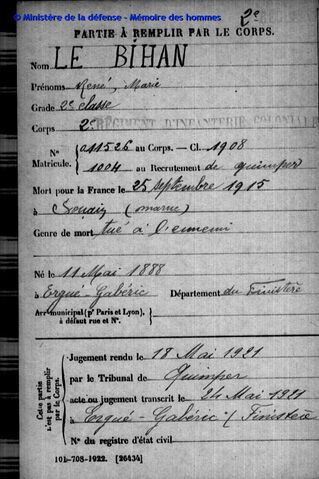 © Ministère de la défense - Mémoire des hommes
2e
PARTIE À REMPLIR PAR LE CORPS.
Nom LE BIHAN
Prénoms René, Marie
Grade 2e classe
Corps 2e RÉGIMENT D'INFANTERIE COLONIALE
N° Matricule. 011526 au Corps. — Cl. 1908
1004 au Recrutement de Quimper
Mort pour la France le 25 septembre 1915
à Souain (marne)
Genre de mort tué à l'ennemi
Né le 11 Mai 1888
à Ergué-Gabéric Département du Finistère
Arrt municipal (pr Paris et Lyon),
à défaut rue et N°.
Cette partie n'est pas à remplir par le Corps.
Jugement rendu le 18 Mai 1921
par le Tribunal de Quimper
acte ou jugement transcrit le 24 Mai 1921
à Ergué-Gabéric (Finistère
N° du registre d'état civil
101-708-1922. [26434]